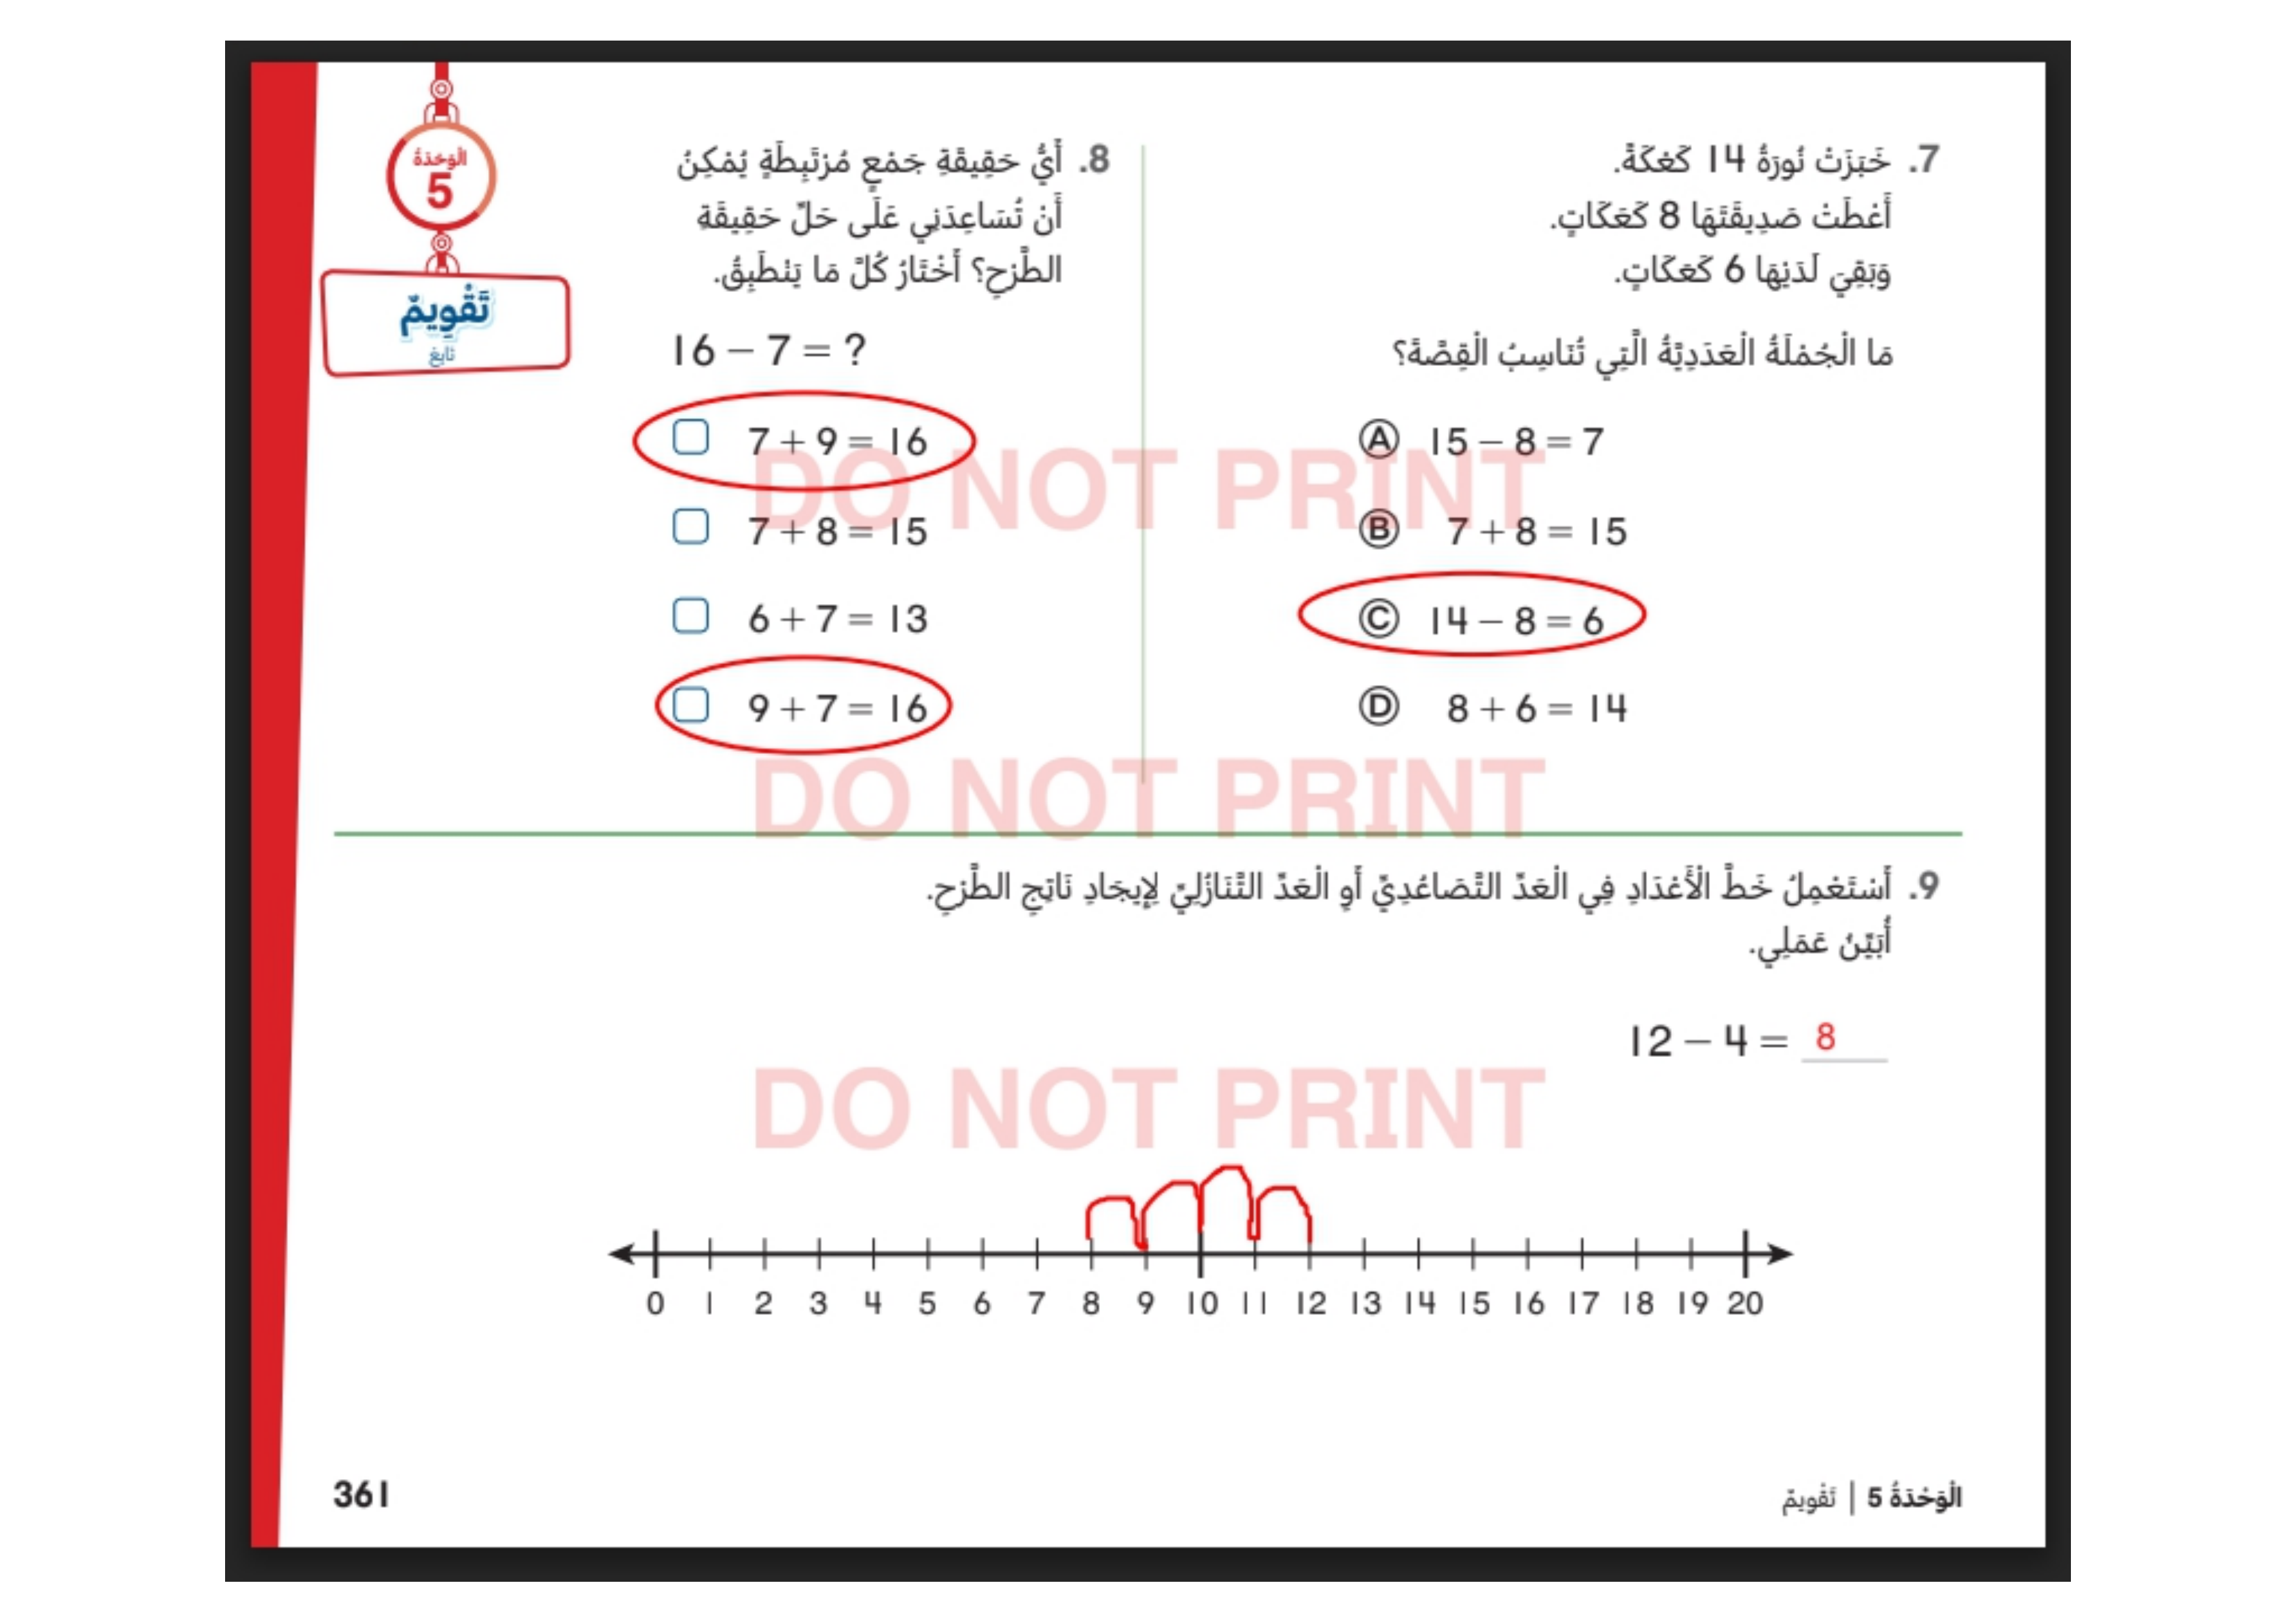 الْوَحْدَةُ
5
تَقْوِيمٌ
تَابِعْ
7. خَبَزَتْ نُورَةُ 14 كَعْكَةً.
أَعْطَتْ صَدِيقَتَهَا 8 كَعَكَاتٍ.
وَبَقِيَ لَدَيْهَا 6 كَعَكَاتٍ.
مَا الْجُمْلَةُ الْعَدَدِيَّةُ الَّتِي تُنَاسِبُ الْقِصَّةَ؟
Ⓐ 15 − 8 = 7
Ⓑ 7 + 8 = 15
Ⓒ 14 − 8 = 6
Ⓓ 8 + 6 = 14
8. أَيُّ حَقِيقَةِ جَمْعٍ مُرْتَبِطَةٍ يُمْكِنُ
أَنْ تُسَاعِدَنِي عَلَى حَلِّ حَقِيقَةِ
الطَّرْحِ؟ أَخْتَارُ كُلَّ مَا يَنْطَبِقُ.
16 − 7 = ?
7 + 9 = 16
7 + 8 = 15
6 + 7 = 13
9 + 7 = 16
DO NOT PRINT
DO NOT PRINT
9. أَسْتَعْمِلُ خَطَّ الْأَعْدَادِ فِي الْعَدِّ التَّصَاعُدِيِّ أَوِ الْعَدِّ التَّنَازُلِيِّ لِإِيجَادِ نَاتِجِ الطَّرْحِ.
أُبَيِّنُ عَمَلِي.
12 − 4 = 8
DO NOT PRINT
0 1 2 3 4 5 6 7 8 9 10 11 12 13 14 15 16 17 18 19 20
الْوَحْدَةُ 5 | تَقْوِيمٌ
361